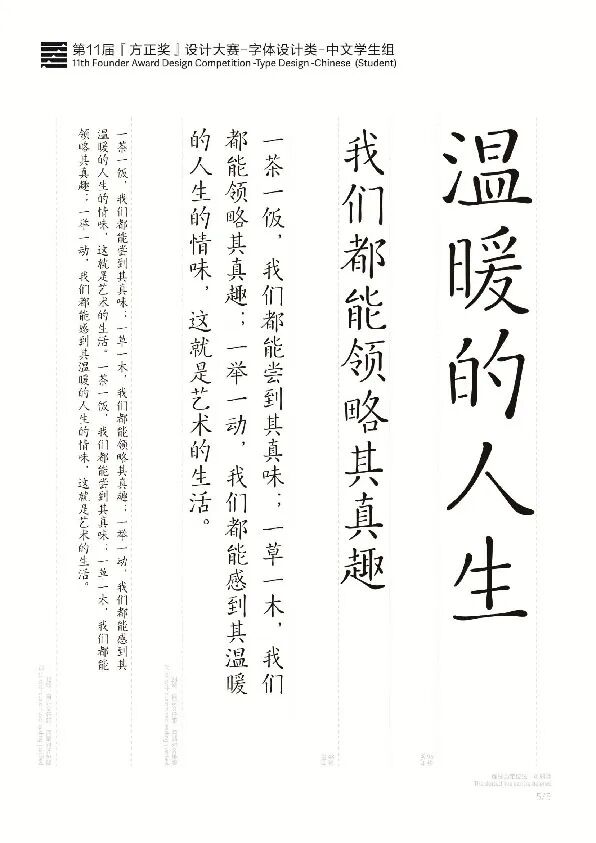 第11届『方正奖』设计大赛-字体设计类-中文学生组
11th Founder Award Design Competition -Type Design -Chinese (Student)
温暖的人生
我们都能领略其真趣
一茶一饭，我们都能尝到其真味；一草一木，我们
都能领略其真趣；一举一动，我们都能感到其温暖
的人生的情味，这就是艺术的生活。
一茶一饭，我们都能尝到其真味；一草一木，我们都能领略其真趣；一举一动，我们都能感到其
温暖的人生的情味，这就是艺术的生活。一茶一饭，我们都能尝到其真味；一草一木，我们都能
领略其真趣；一举一动，我们都能感到其温暖的人生的情味，这就是艺术的生活。